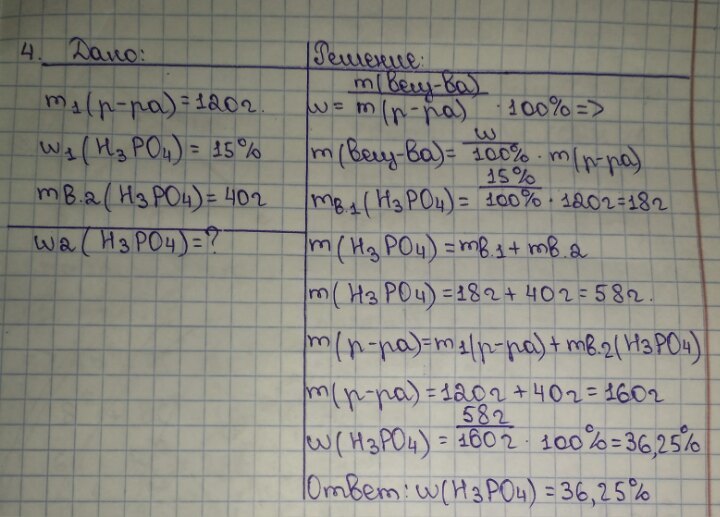 4. Дано:
m1(р-ра)=120г.
w1(H3PO4)=15%
mв.2(H3PO4)=40г
w2(H3PO4)=?
Решение:
w= m(вещ-ва)/m(р-ра) · 100% =>
m(вещ-ва)= w/100% · m(р-ра)
mв.1(H3PO4)= 15%/100% · 120г=18г
m(H3PO4)=mв.1+mв.2
m(H3PO4)=18г+40г=58г.
m(р-ра)=m1(р-ра)+mв.2(H3PO4)
m(р-ра)=120г+40г=160г
w(H3PO4)= 58г/160г · 100%=36,25%
Ответ: w(H3PO4)=36,25%